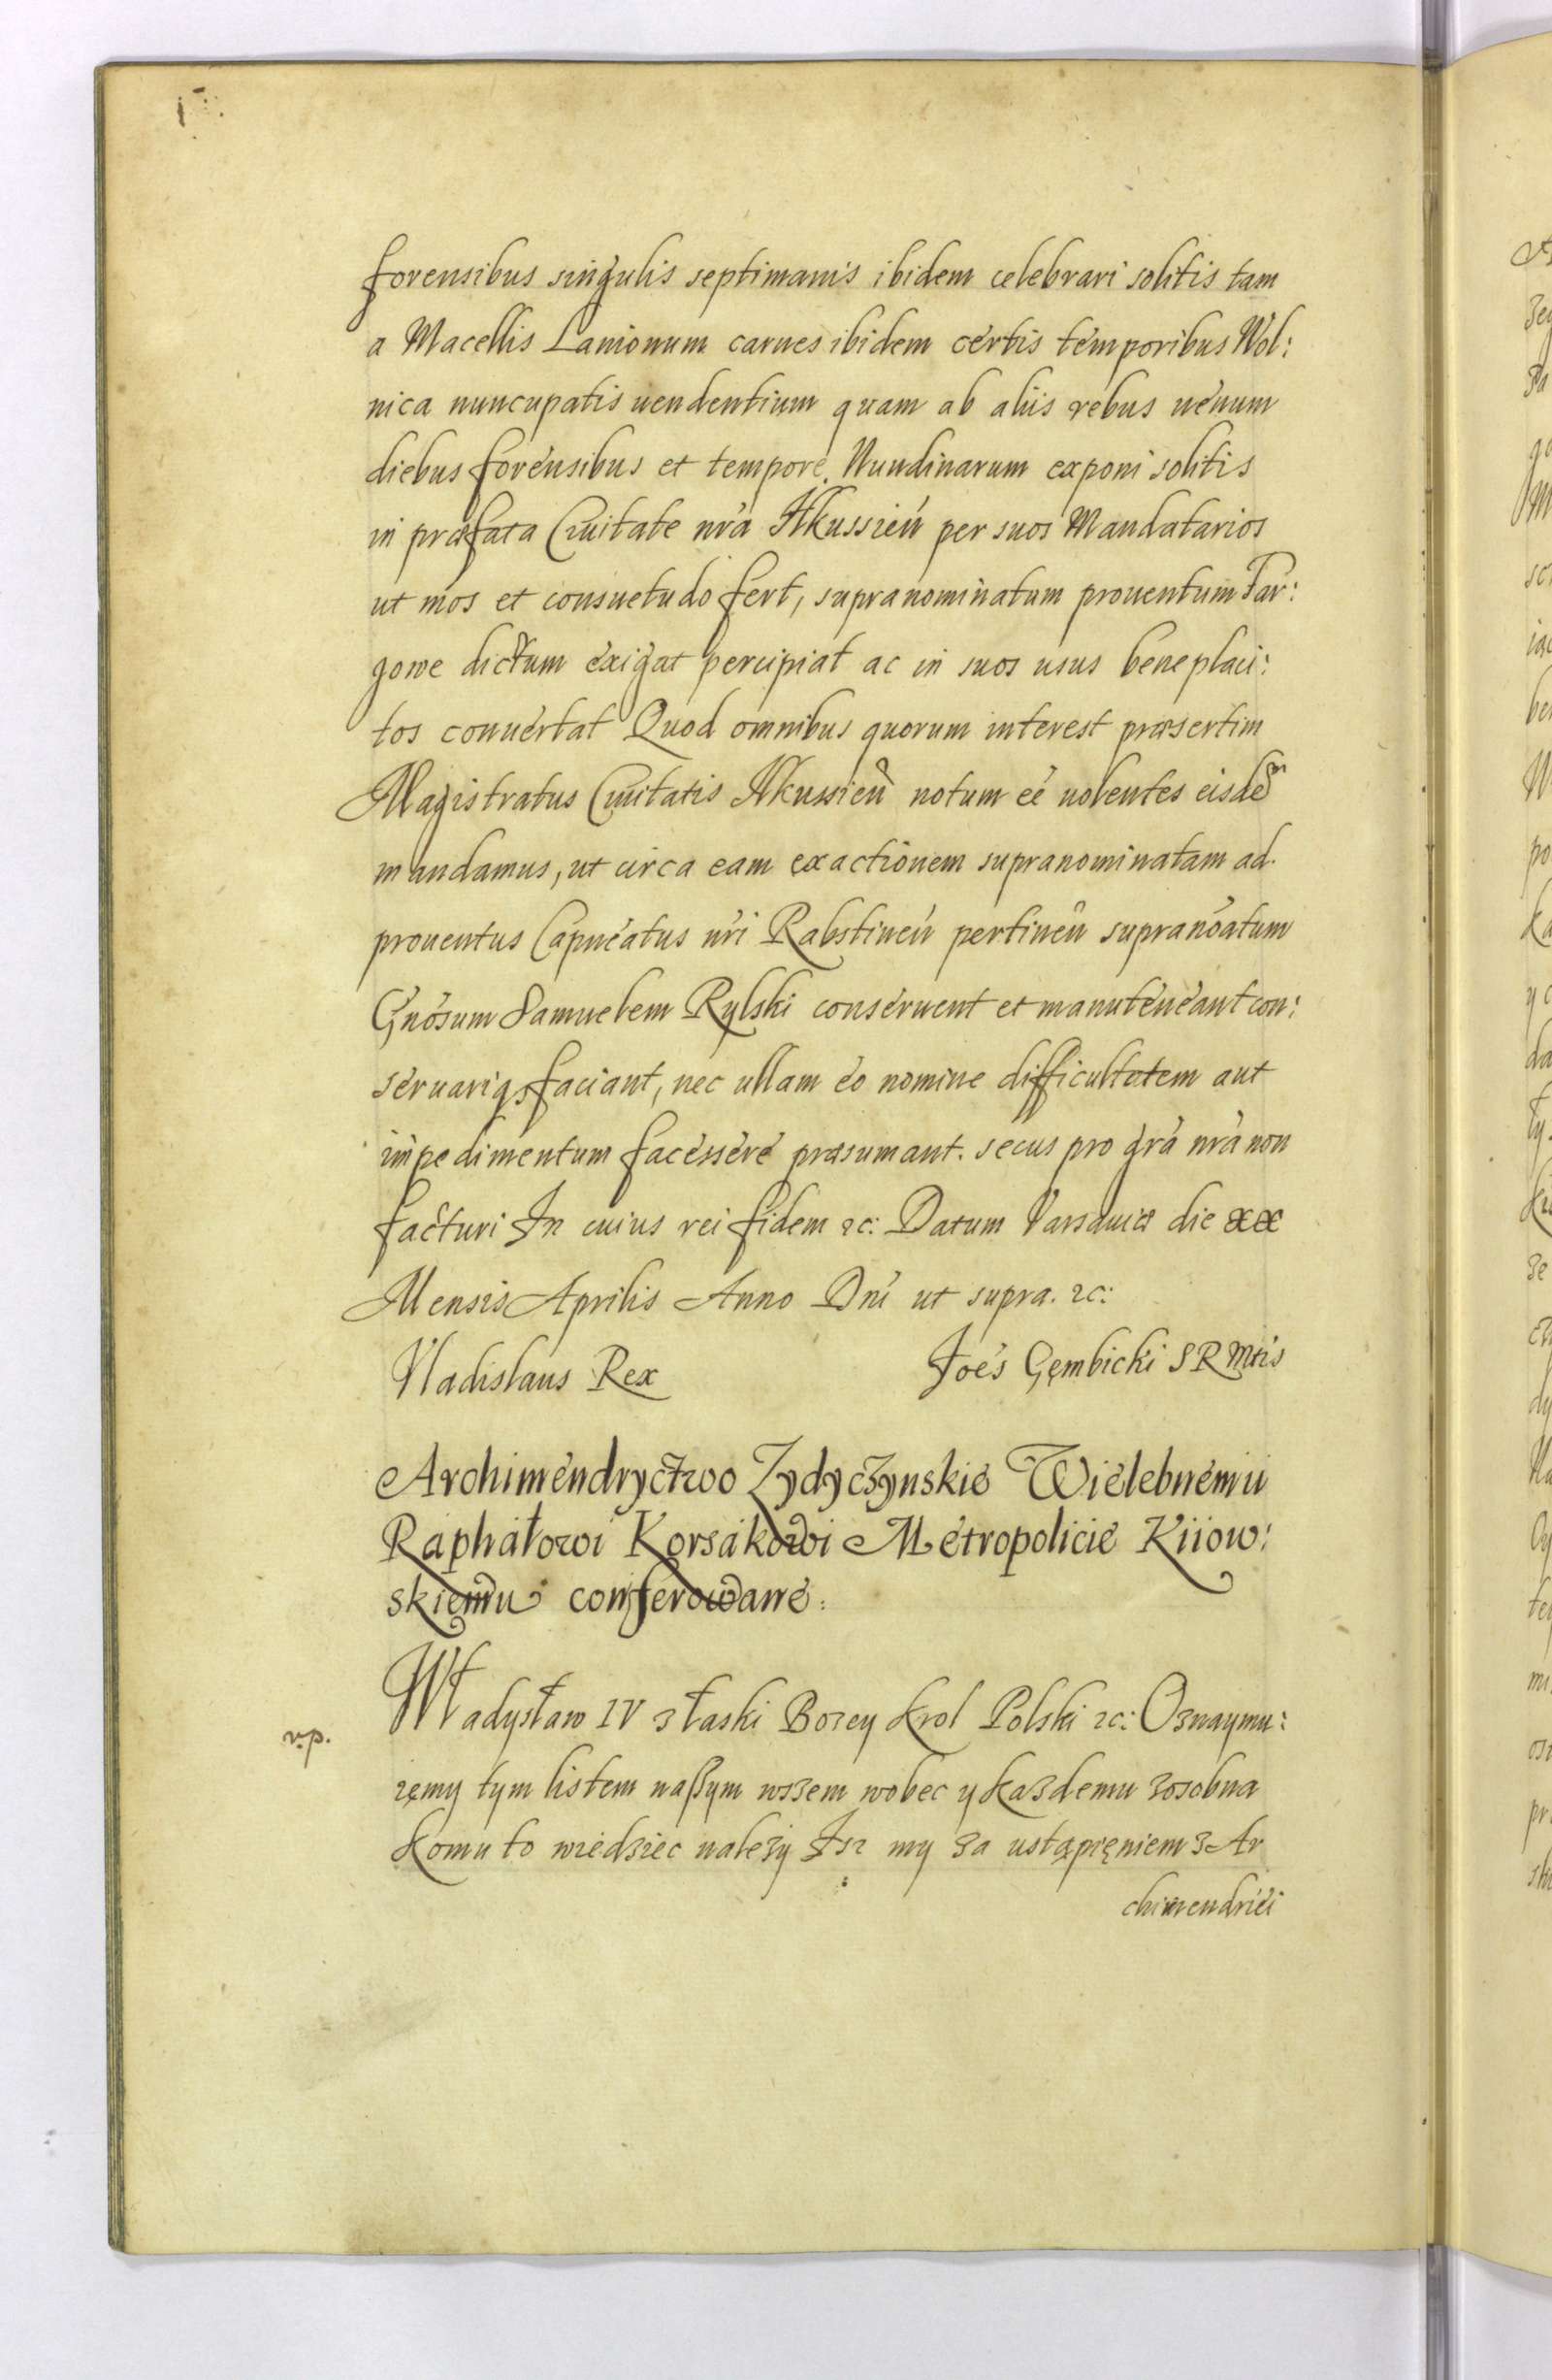 forensibus singulis septimanis ibidem celebrari solitis tam
a Macellis Lanionum carnes ibidem certis temporibus Wol:
nica nuncupatis uendentium quam ab aliis rebus uenum
diebus forensibus et tempore Nundinarum exponi solitis
in præfata Ciuitate nrã Ilkussien̄ per suos Mandatarios
ut mos et consuetudo fert, supranominatum prouentum Tar:
gowe dictum exigat percipiat ac in suos usus beneplaci:
tos conuertat Quod omnibus quorum interest præsertim
Magistratus Ciuitatis Ilkussien̄ notum eē uolentes eisdem
mandamus, ut circa eam exactionem supranominatam ad
prouentus Capneatus nr̄i Rabstinen̄ pertinen̄ supranoātum
Gnōsum Samuelem Rylski conseruent et manuteneant con:
seruariqȝ faciant, nec ullam eo nomine difficultatem aut
impedimentum facessere præsumant. secus pro grã nrã non
facturi In cuius rei fidem &c: Datum Varsauiæ die xx
Mensis Aprilis Anno Dnī ut supra. &c:
Vladislaus Rex Joēs Gęmbicki S R Mtis
Archimendryctwo Zydyczynskie Wielebnemu
Raphałowi Korsakowi Metropolicie Kiiow:
skiemu conferowane:
Władysław IV z łaski Bozey Krol Polski &c: Oznaymu:
v.p.
ięmy tym listem naßym wszem wobec y kazdemu zosobna
komu to wiedziec nalezy Isz my za ustąpięniem z Ar
chimendriei